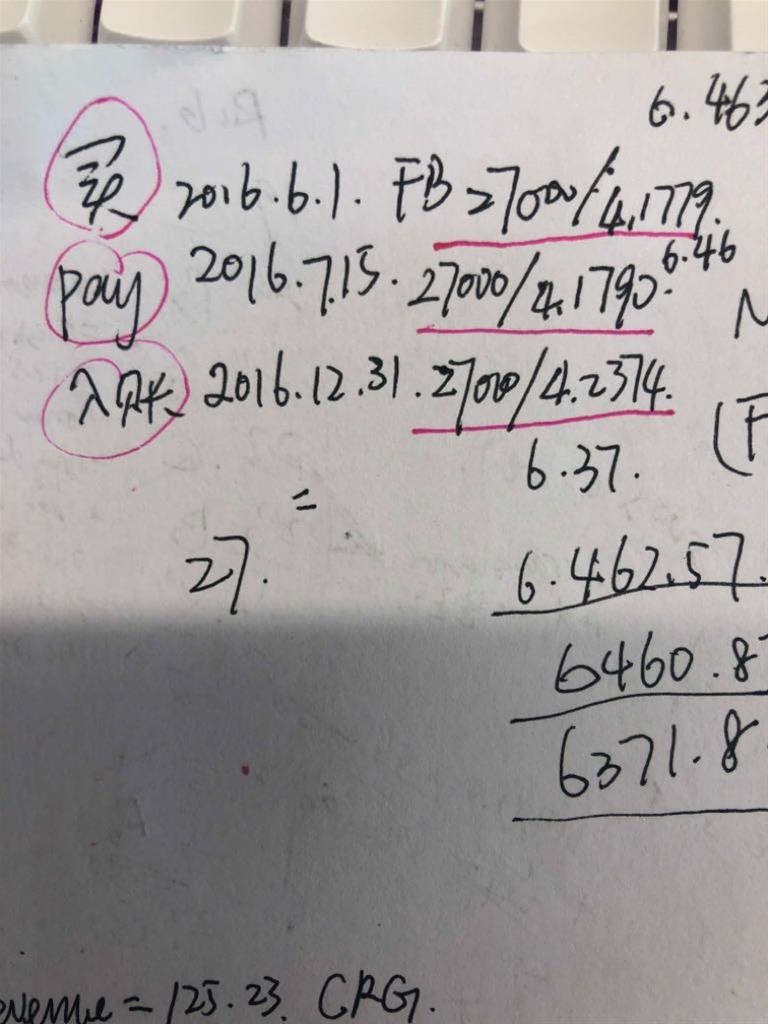 6.463
买 2016.6.1. FB 27000/4.1779.
pay 2016.7.15. 27000/4.1790. 6.46
入账 2016.12.31. 27000/4.2374.
6.37.
=
27.
6.462.57.
6460.8
6371.8
= 125.23. CRG.